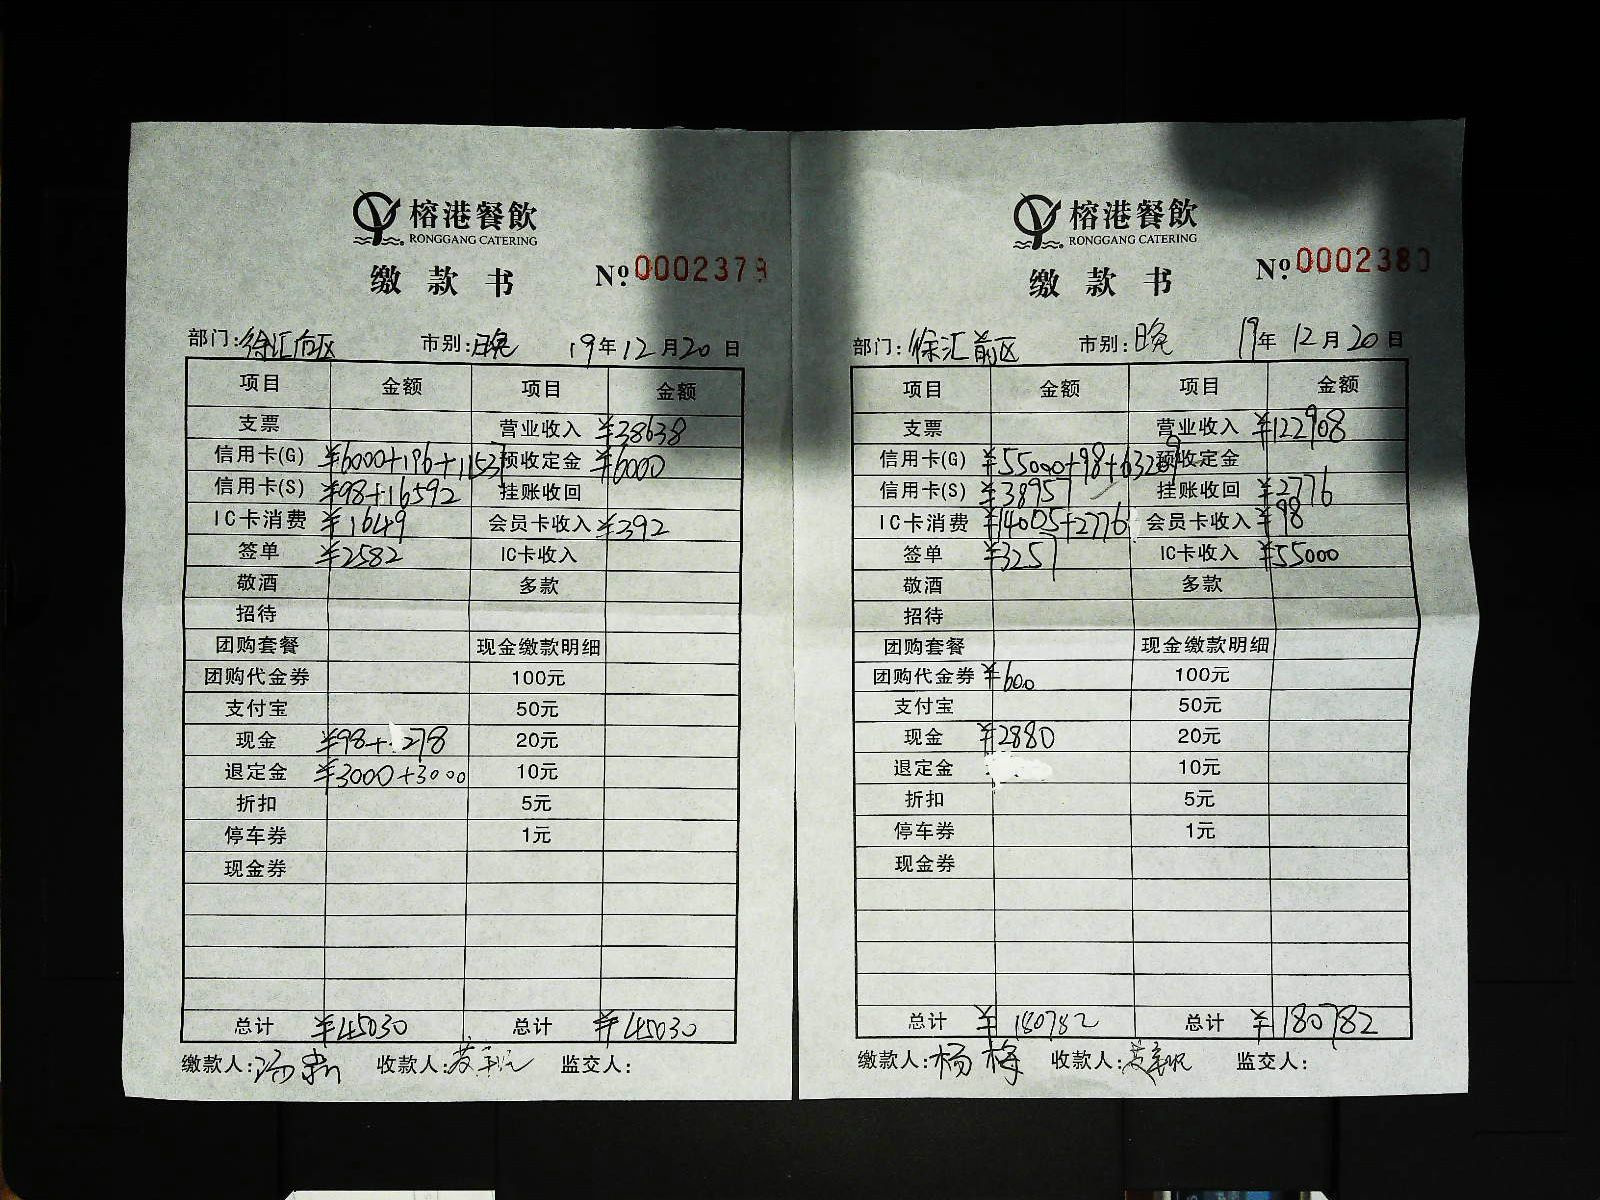 榕港餐飲
RONGGANG CATERING
缴款书 Nº 0002379
部门:徐汇后区 市别:晚 19年12月20日
项目 金额 项目 金额
支票 营业收入 ¥38638
信用卡(G) ¥6000+196+11537 预收定金 ¥6000
信用卡(S) ¥98+16592 挂账收回
IC卡消费 ¥1649 会员卡收入 ¥392
签单 ¥2582 IC卡收入
敬酒 多款
招待
团购套餐 现金缴款明细
团购代金券 100元
支付宝 50元
现金 ¥98+278 20元
退定金 ¥3000+3000 10元
折扣 5元
停车券 1元
现金券
总计 ¥45030 总计 ¥45030
缴款人: 收款人: 监交人:
榕港餐飲
RONGGANG CATERING
缴款书 Nº 0002380
部门:徐汇前区 市别:晚 19年12月20日
项目 金额 项目 金额
支票 营业收入 ¥122908
信用卡(G) ¥55000+98+63209 预收定金
信用卡(S) ¥38957 挂账收回 ¥2776
IC卡消费 ¥14005+2776 会员卡收入 ¥98
签单 ¥3257 IC卡收入 ¥55000
敬酒 多款
招待
团购套餐 现金缴款明细
团购代金券 ¥600 100元
支付宝 50元
现金 ¥2880 20元
退定金 10元
折扣 5元
停车券 1元
现金券
总计 ¥180782 总计 ¥180782
缴款人:杨梅 收款人: 监交人: